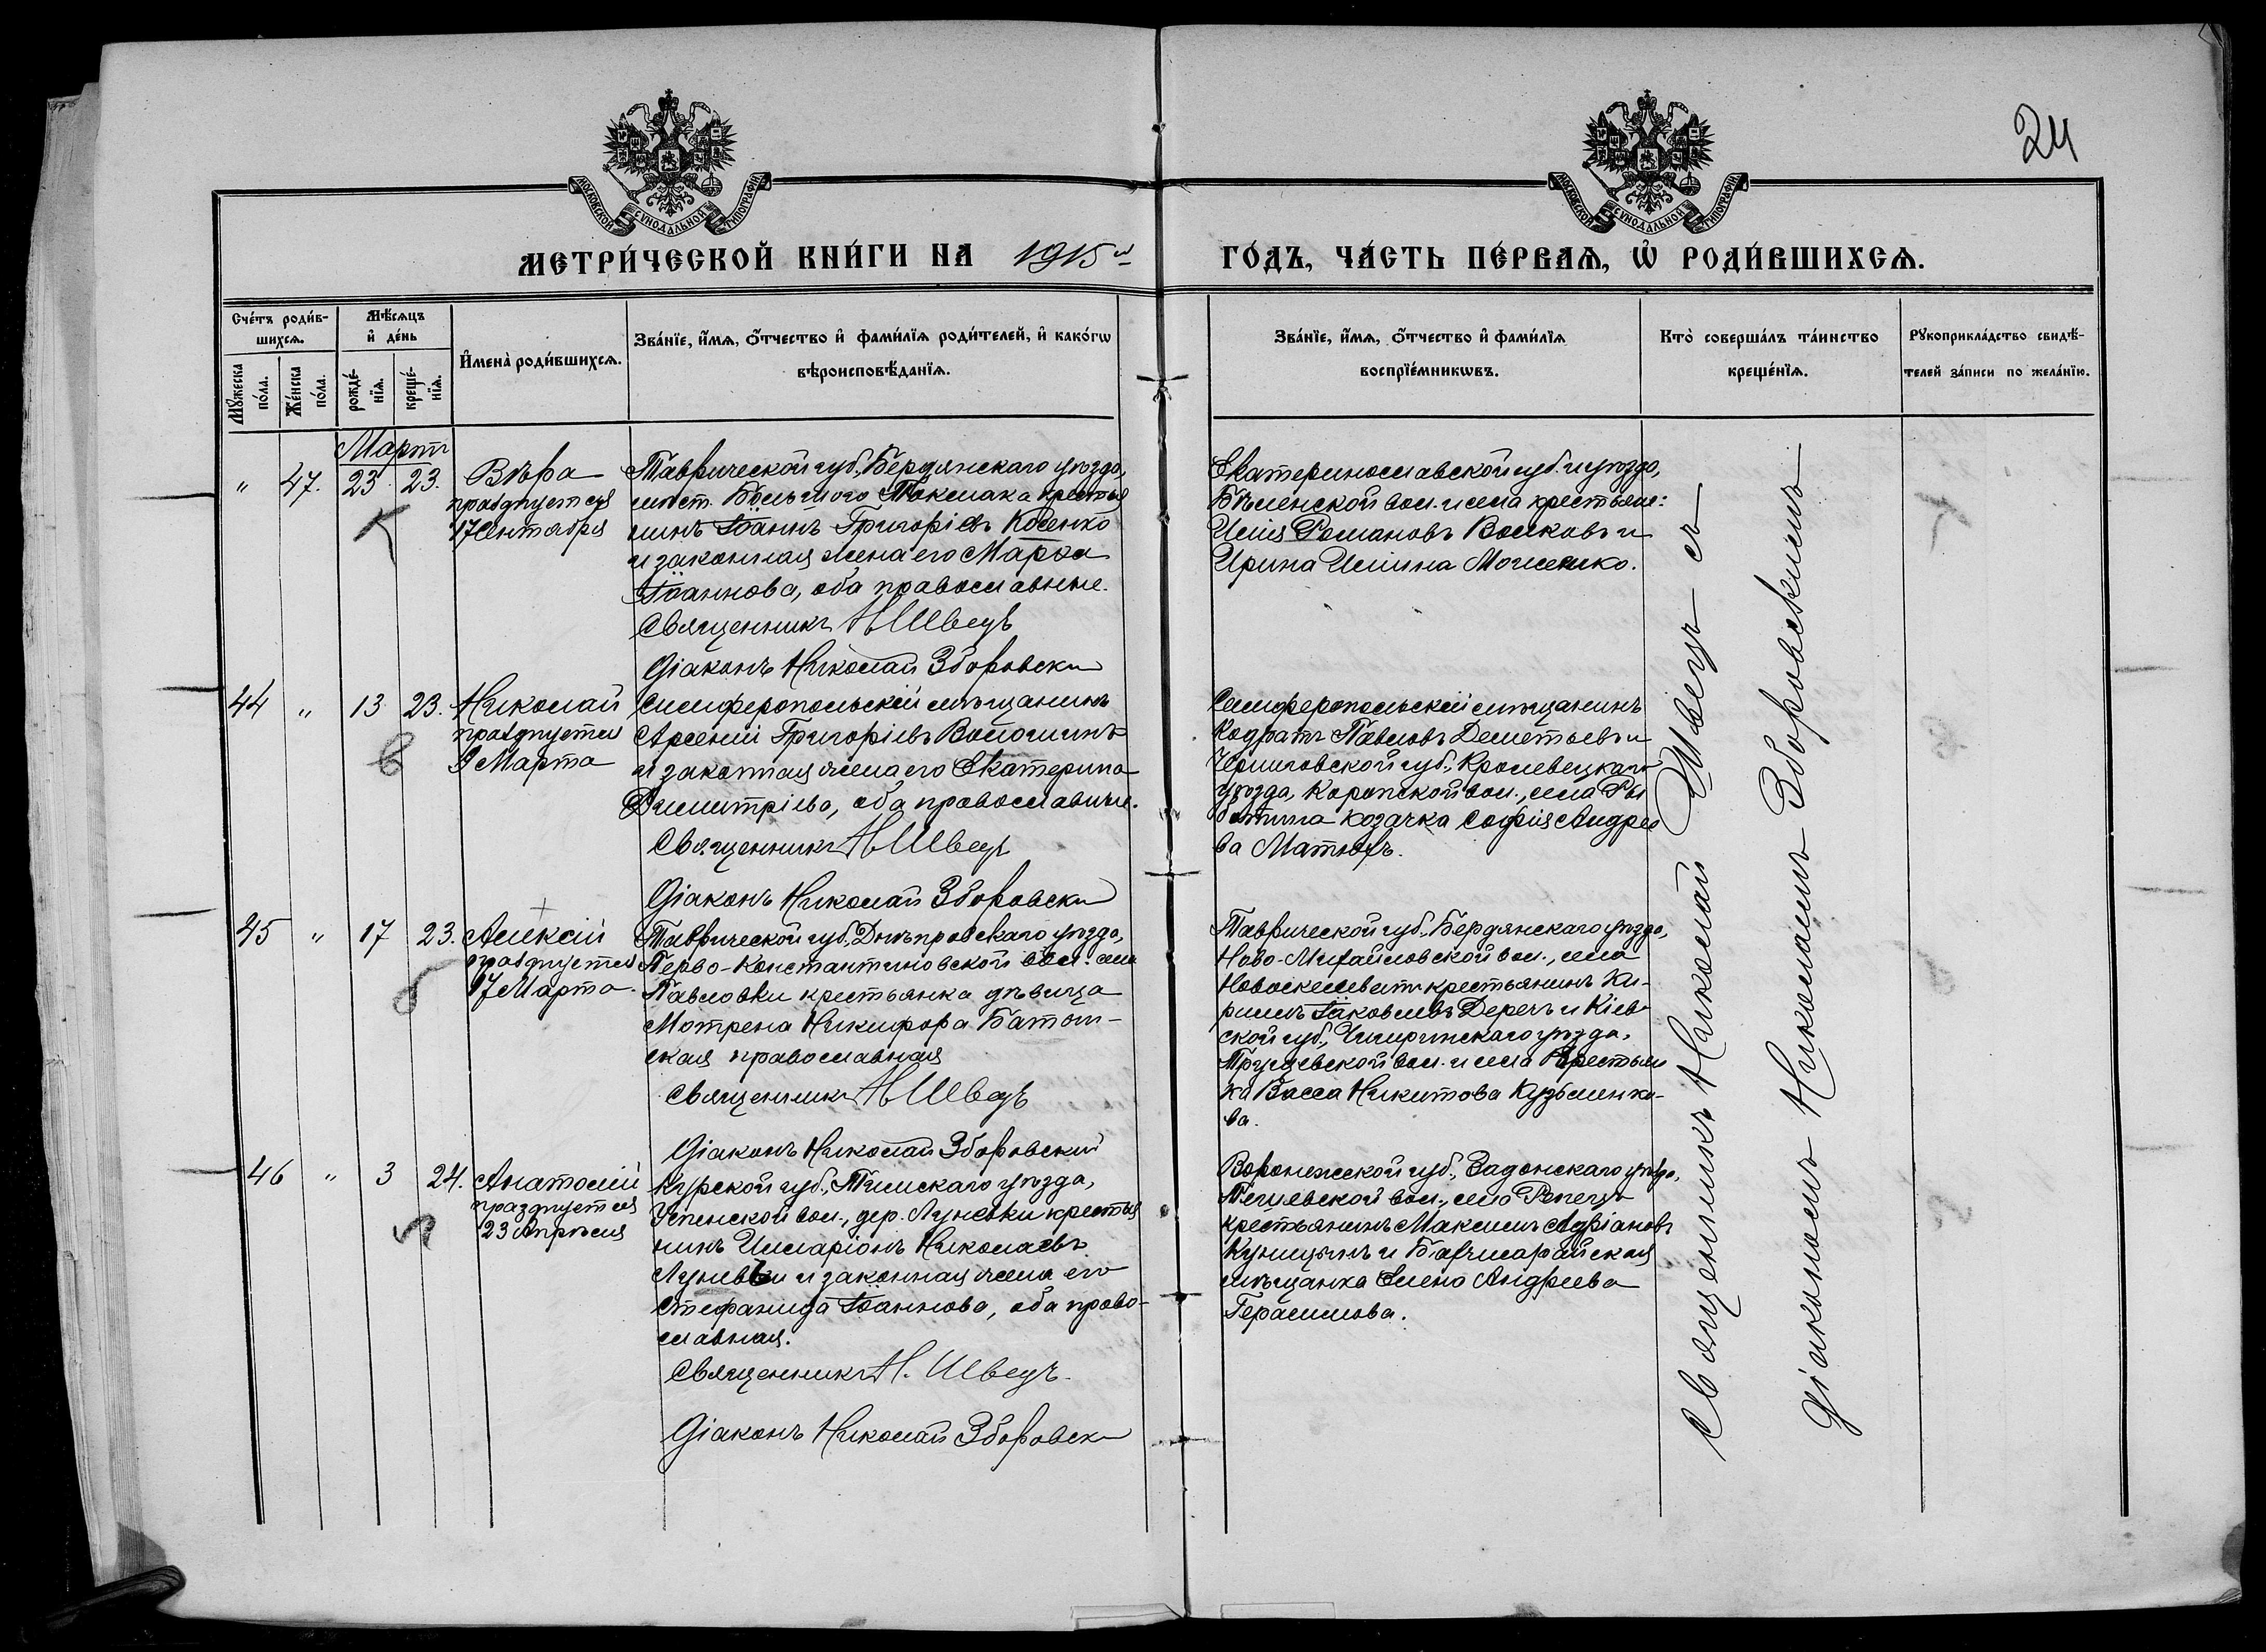 24
МОСКОВСКОЙ СѴНОДАЛЬНОЙ ТИПОГРАФІИ
МОСКОВСКОЙ СѴНОДАЛЬНОЙ ТИПОГРАФІИ
МЕТРИ́ЧЕСКОЙ КНИ́ГИ НА 1915 й
ГО́ДЪ, ЧА́СТЬ ПЕ́РВАѦ, Ѡ҆ РОДИ́ВШИХСѦ.
Сче́тъ роди́в-
шихсѧ.
Мꙋ́жеска по́ла.
Же́нска по́ла.
Мѣ́сѧцъ
и҆ де́нь
рожде́-
нїѧ.
креще́-
нїѧ.
И҆мена̀ роди́вшихсѧ.
Зва́нїе, и҆́мѧ, ѻ҆́тчество и҆ фами́лїѧ роди́телей, и҆ како́гѡ
вѣроисповѣ́данїѧ.
Зва́нїе, и҆́мѧ, ѻ҆́тчество и҆ фами́лїѧ
воспрїе́мникѡвъ.
Кто̀ соверша́лъ та́инство
креще́нїѧ.
Рꙋкоприкла́дство свидѣ́-
телей за́писи по жела́нїю.
Мартъ
" 47. 23 23.
Вѣра
празднуется
17 Сентября
Таврической губ., Бердянскаго уѣзда,
мѣст. Большого Токмака крестья
нинъ Іоаннъ Григоріевъ Косенко
и законная жена его Марѳа
Іоаннова, оба православные.
Священникъ Н Швецъ
Діаконъ Николай Зборовскі
Екатеринославской губ. и уѣзда,
Бѣленской вол. и села крестьяне:
Илія Романовъ Волковъ и
Ирина Иліина
44 " 13 23.
Николай
празднуется
9 Марта
Симферопольскій мѣщанинъ
Арсеній Григоріевъ Волошинъ
и законная жена его Екатерина
Димитріева, оба православные.
Священникъ Н Швецъ
Діаконъ Николай Зборовскі
Симферопольскій мѣщанинъ
Кодратъ Павловъ Дементьевъ и
Черниговской губ., Кролевецкаго
уѣзда, Коропской вол., села Ры
ботина козачка Софія Андрее
ва Матюхъ.
45 " 17 23.
Алексій
празднуется
17 Марта
Таврической губ., Днѣпровскаго уѣзда,
Перво-Константиновской вол. села
Павловки крестьянка дѣвица
Мотрона Никифора
ская православная
Священникъ Н Швецъ
Діаконъ Николай Зборовскій
Таврической губ., Бердянскаго уѣзда,
Ново-Михайловской вол., села
крестьянинъ Ки-
риллъ Іаковлевъ Деречъ и Кіев
ской губ., Чигиринскаго уѣзда,
Трушевской вол. и села крестьян
ка Васса Никитова Кузьменко-
ва.
46 " 3 24.
Анатолій
празднуется
23 Апрѣля
Курской губ., Тимскаго уѣзда,
Успенской вол., дер. Луневки крестья
нинъ Илларіонъ Николаевъ
Луневъ и законная жена его
Стефанида Іоаннова, оба право-
славная.
Священникъ Н. Швецъ.
Діаконъ Николай Зборовскі
Воронежской губ., Задонскаго уѣзда,
вол., села Репецъ
крестьянинъ Максимъ Адріановъ
Куницынъ и Бахчисарайская
мѣщанка Елена Андреева
Герасимова.
Священникъ Николай Швецъ съ
діакономъ Николаемъ Зборовскимъ